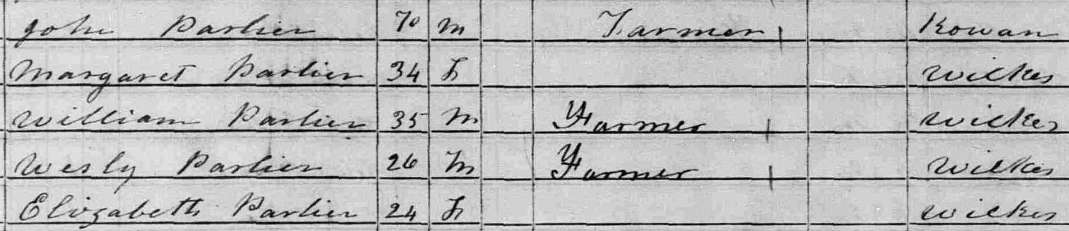 John Parlier 70 m Farmer Rowan
Margaret Parlier 34 f Wilkes
William Parlier 35 m Farmer Wilkes
Wesly Parlier 26 m Farmer Wilkes
Elizabeth Parlier 24 f Wilkes